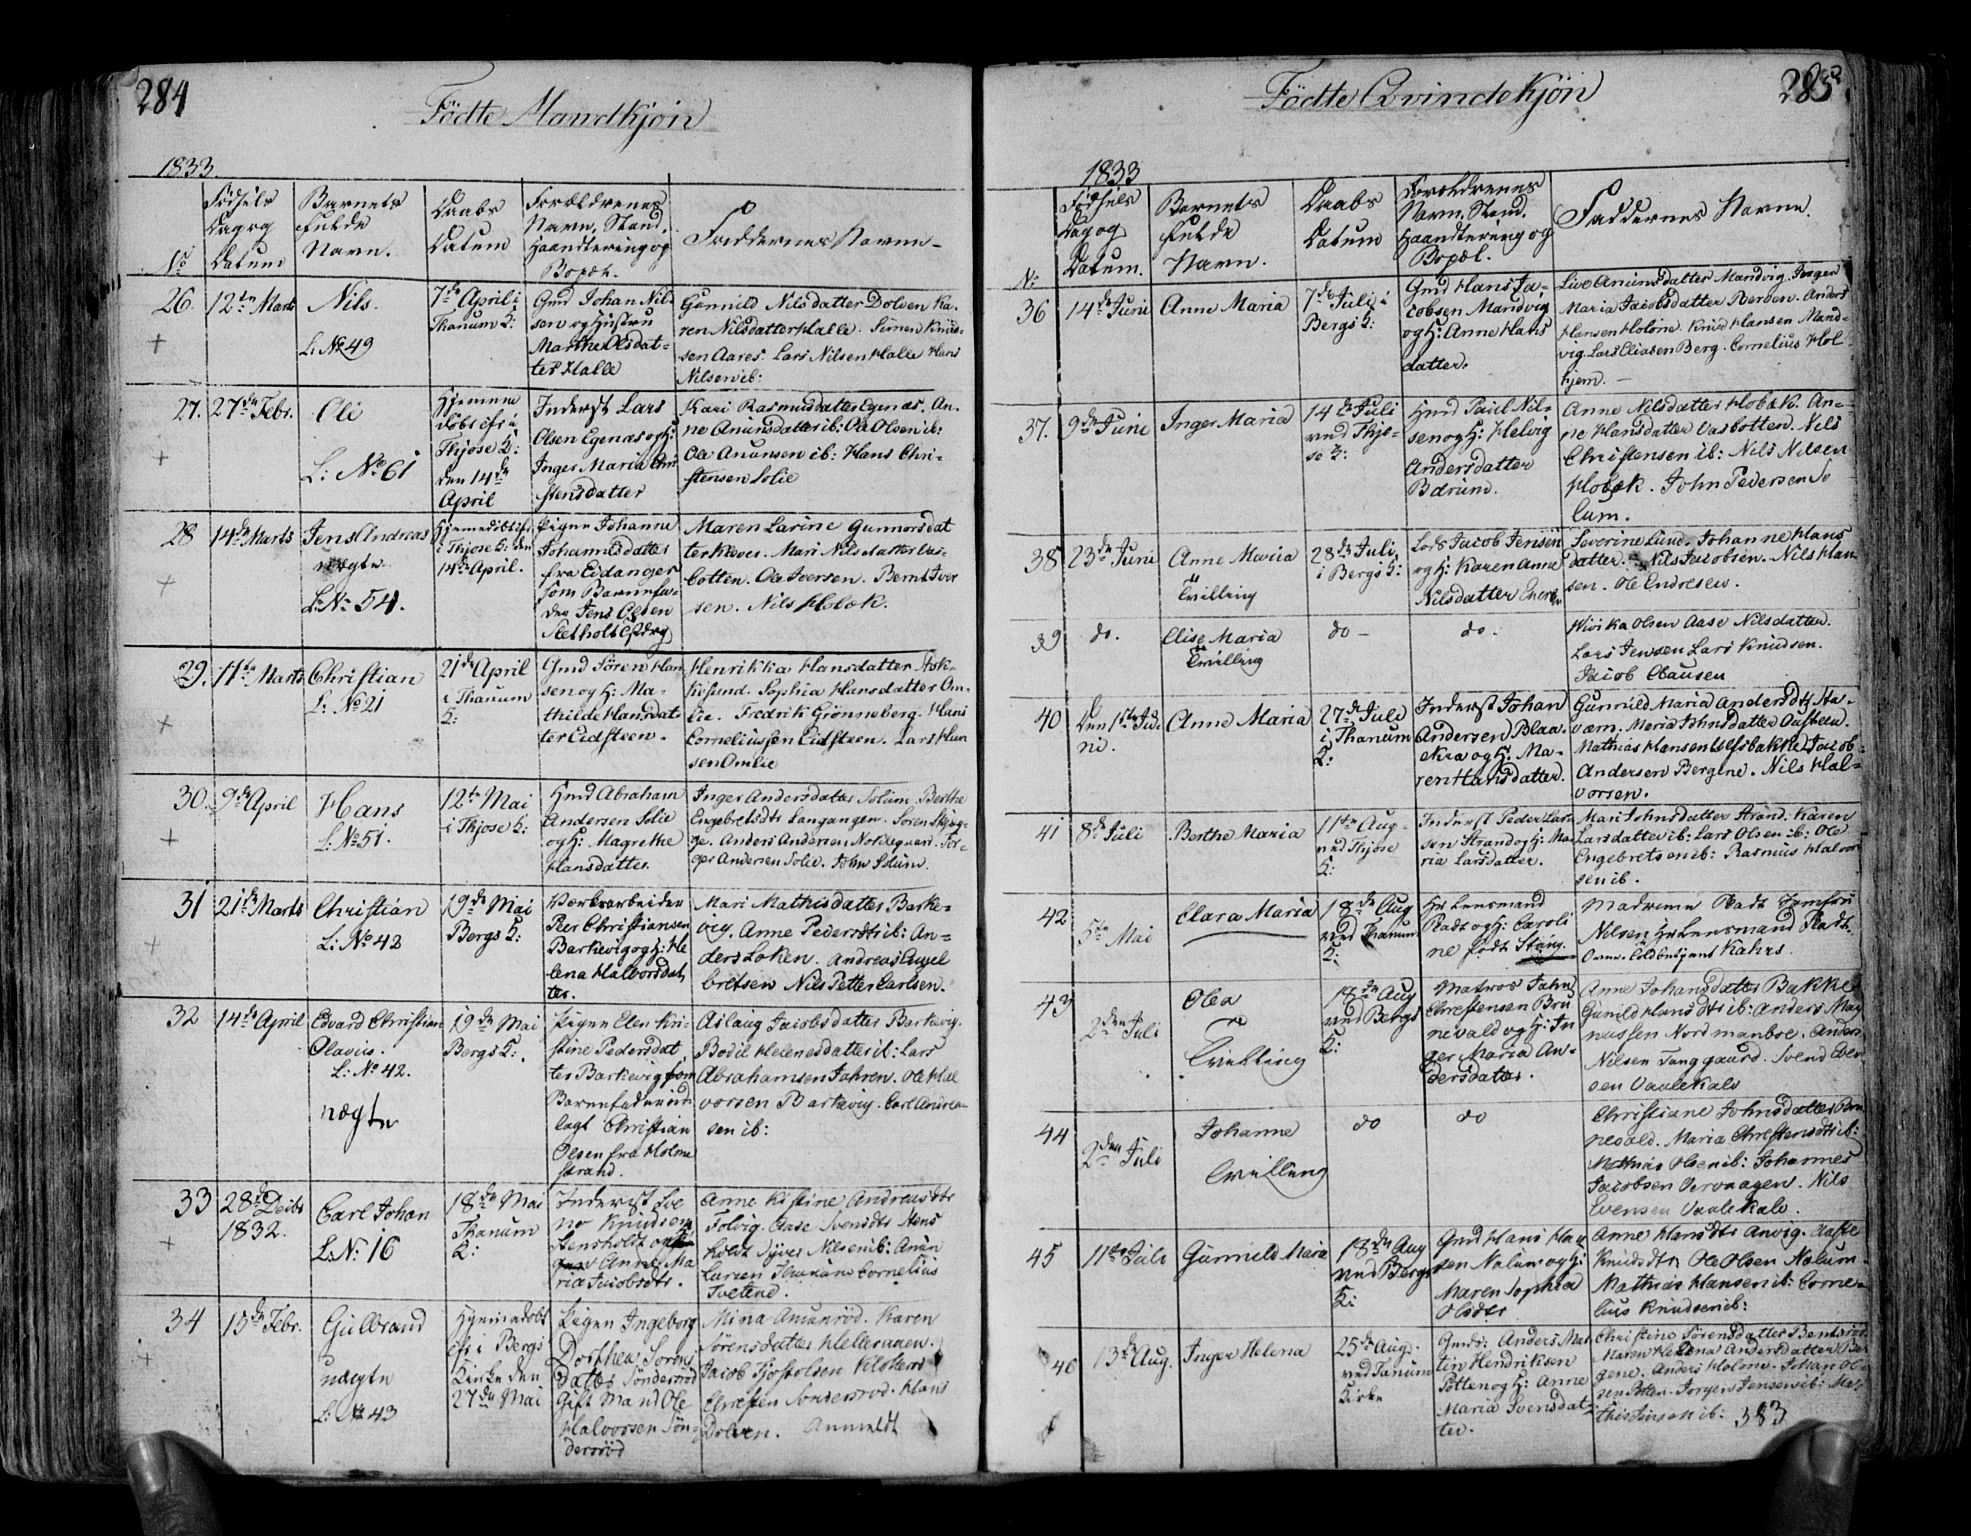 284
Födte Mandkjön
1833.
No
Födsels Dag og Datum
Barnets fulde Navn.
Daabs Datum
Forældrenes Navn, Stand, Haandtering og Bopæl.
Faddernes Navne
26. 12te Marts
Nils.
L: No 49
7de April i
Thanum K:
Gmd Johan Nil-
sen og Hustru
Marthe Olsdat-
ter Halle
Gunnild Nilsdatter Dolven Ka-
ren Nilsdatter Halle. Simen Knud-
sen Aares. Lars Nilsen Halle Hans
Nilsen ib:
27. 27de Febr.
Oli
L: No 61
Hjemme
döbt
Thjose K:
den 14de
April
Inderst Lars
Olsen Egenæs og H:
Inger Maria Chri
stensdatter
Kari Rasmusdatter Egenæs. An-
ne Amunsdatter ib: Ole Olsen ib:
Ole Amunsen ib: Hans Chri-
stensen Solie
28 14de Marts
Jens Andreas
uægte
L: No 54.
Hjemmedöbt
i Thjose K: den
14de April.
Pigen Johanne
Johannesdatter
fra Eidanger
som Barnefa-
der Jens Olsen
Maren Larine Gunnorsdat
ter. Mari Nilsdatter Vas-
botten. Ole Iversen. Bernt Iver
sen. Nils Hobæk.
29. 11te Marts
Christian
L: No 21
21de April
i Thanum
K:
Gmd Sören Han
sen og H: Ma-
thilde Hansdat
ter Eidsteen.
Henrikka Hansdatter Stok-
kesund. Sophia Hansdatter Om-
lie. Fredrik Grönneberg. Hans
Corneliussen Eidsteen. Lars Han
sen Omlie
30. 9de April
Hans
L: No 51.
12te Mai
i Thjose K:
Hmd Abraham
Andersen Solie
og H: Magrethe
Hansdatter.
Inger Andersdatter Solum Berthe
Engebretsdtr Langangen. Sören
Anders Andersen. Tor-
ger Andersen Solie. John Solum.
31 21de Marts
Christian
L: No 42
19de Mai
Bergs K:
Værksarbeider
Peer Christiansen
Barkevig og H: He
lena Halvorsdat
ter.
Mari Mathisdatter Barke-
vig. Anne Pedersdtr ib: An-
ders Loken. Andreas Engel
bretsen Nils Petter Carlsen.
32 14de April
Edvard Christian
Olavus.
L: No 42.
uægte
19de Mai
Bergs K:
Pigen Elen Kri-
stine Pedersdat
ter Barkevig som
Barnefader ud
lagt Christian
Olsen fra Holme
strand.
Aslaug Jacobsdatter Barkevig.
Bodil Helenesdatter ib: Lars
Abrahamsen Jahren. Ole Hal
vorsen Barkevig. Carl Andrea-
sen ib:
33 28de Decbr
1832.
Carl Johan
L: No: 16
18de Mai
Thanum
K:
Inderst
Knudsen
Stensholt og
Anne Ma
ria Jacobsdtr.
Anne Kistine Andreasdtr
Tolvig. Aase Svensdtr Stens
holdt Syver Nilsen ib: Amun
Larsen Thanum Cornelius
Tvetene.
34 15de Febr.
Gulbrand
uægte
L: No 43
Hjemmedöbt
i Bergs
Kirke den
27de Mai
Pigen Ingeborg
Dorthea Sörens
datter Sönderröd
Gift Mand Ole
Halvorsen Sön-
derröd
Mina Amunröd. Karen
Sörensdatter Hellenaaen.
Jacob Tjostolsen
Christen Sönderröd. Hans
Dolven. Anmeldt
285.
Födte Qvindekjön
1833
No
Födsels Dag og Datum.
Barnets fulde Navn.
Daabs Datum
Forældrenes Navn, Stand, Haandtering og Bopæl.
Faddernes Navne.
36 14de Juni
Anne Maria
7de Juli i
Bergs K:
Gmd Hans Ja-
cobsen Mandvig
og H: Anne Hans
datter.
Live Amunsdatter Mandvig. Inger
Maria Jacobsdatter Bergen. Anders
Hansen Holone. Knud Hansen Mand-
vig. Lars Eliasen Berg. Cornelius Hol-
hjem.
37. 9de Juni
Inger Maria
14de Juli
ved Thjo-
se K:
Hmd Paul Nil-
sen og H: Helvig
Andersdatter
Bærum.
Anne Nilsdatter Hobæk. An-
ne Hansdatter Vasbotten. Nils
Christensen ib: Nils Nilsen
Hobæk. John Pedersen So
lum.
38 23de Juni
Anne Maria
Tvilling
28de Juli
i Bergs K:
Lods Jacob Jensen
og H: Karen Anne
Nilsdatter
Severine Lund. Johanne Hans
datter. Nils Jacobsen. Nils Han
sen. Ole Endresen.
39 do.
Elise Maria
Tvilling
do
do.
Wivika Olsen Aase Nilsdatter.
Lars Jensen Lars Knudsen.
Jacob Clausen
40 Den 1ste Ju-
ni.
Anne Maria
27de Juli
i Thanum
K:
Inderst Johan
Andersen Blaa-
ekra og H: Ma-
ren Hansdatter.
Gunnild Maria Andersdtr Ha-
væm. Maria Johnsdatter Omsteen.
Mathias Hansen Jacob
Andersen Bergene. Nils Hal-
vorsen.
41 8de Juli
Berthe Maria
11te Aug-
ved Thjose
K:
Inderst Peder Lar
sen Strand og H: Ma-
ria Larsdatter.
Mari Johnsdatter Strand. Karen
Larsdatter ib: Lars Olsen ib: Ole
Engebretsen ib: Rasmus Halvor
sen ib.
42 5te Mai
Clara Maria
18de Aug
ved Thanum
K:
Hr Lensmand
Radt og H: Caroli
ne födt Stang.
Madame Radt Jomfru
Nilsen Hr Lensmand Radt.
Over Toldbetjent Kahrs.
43 2den Juli
Olea
Tvilling
18de Aug
ved Bergs
K:
Matros John
Christensen Bru
nevald og H: In
ger Maria An-
dersdatter.
Anne Johansdatter Bakke
Gunild Hansdtr ib: Anders Mag
nussen Nordmanbroe. Anders
Nilsen Tanggaard. Svend Even
sen Vaalekals
44 2den Juli
Johanne
Tvilling
do
do
Christiane Johnsdatter Bru
nevald. Maria Christensdtr ib:
Mathias Olsen ib: Johannes
Jacobsen Vervaagen. Nils
Evensen Vaalekals.
45 11te Juli
Gunnild Maria
18de Aug
ved Bergs
K:
Gmd Hans Han
sen Nalum og H:
Maren Sophia
Olsdtr
Anne Hansdtr Anvig. Aaste
Knudsdtr Ole Olsen Nalum
Mathias Hansen ib: Corne-
lius Knudsen ib:
46 13de Aug.
Inger Helena
25de Aug.
ved Tanum
Kirke
Gmd: Anders Mar
tin Hendriksen
Pötten og H: Anne
Maria Svensdat-
ter.
Christine Sörensdatter Bentsröd
Maren Helena Andersdatter Ber
gene. Anders Holone. Johan Ol-
sen Pötten. Jörgen Jensen ib: Ma-
this Jensen ib:
383